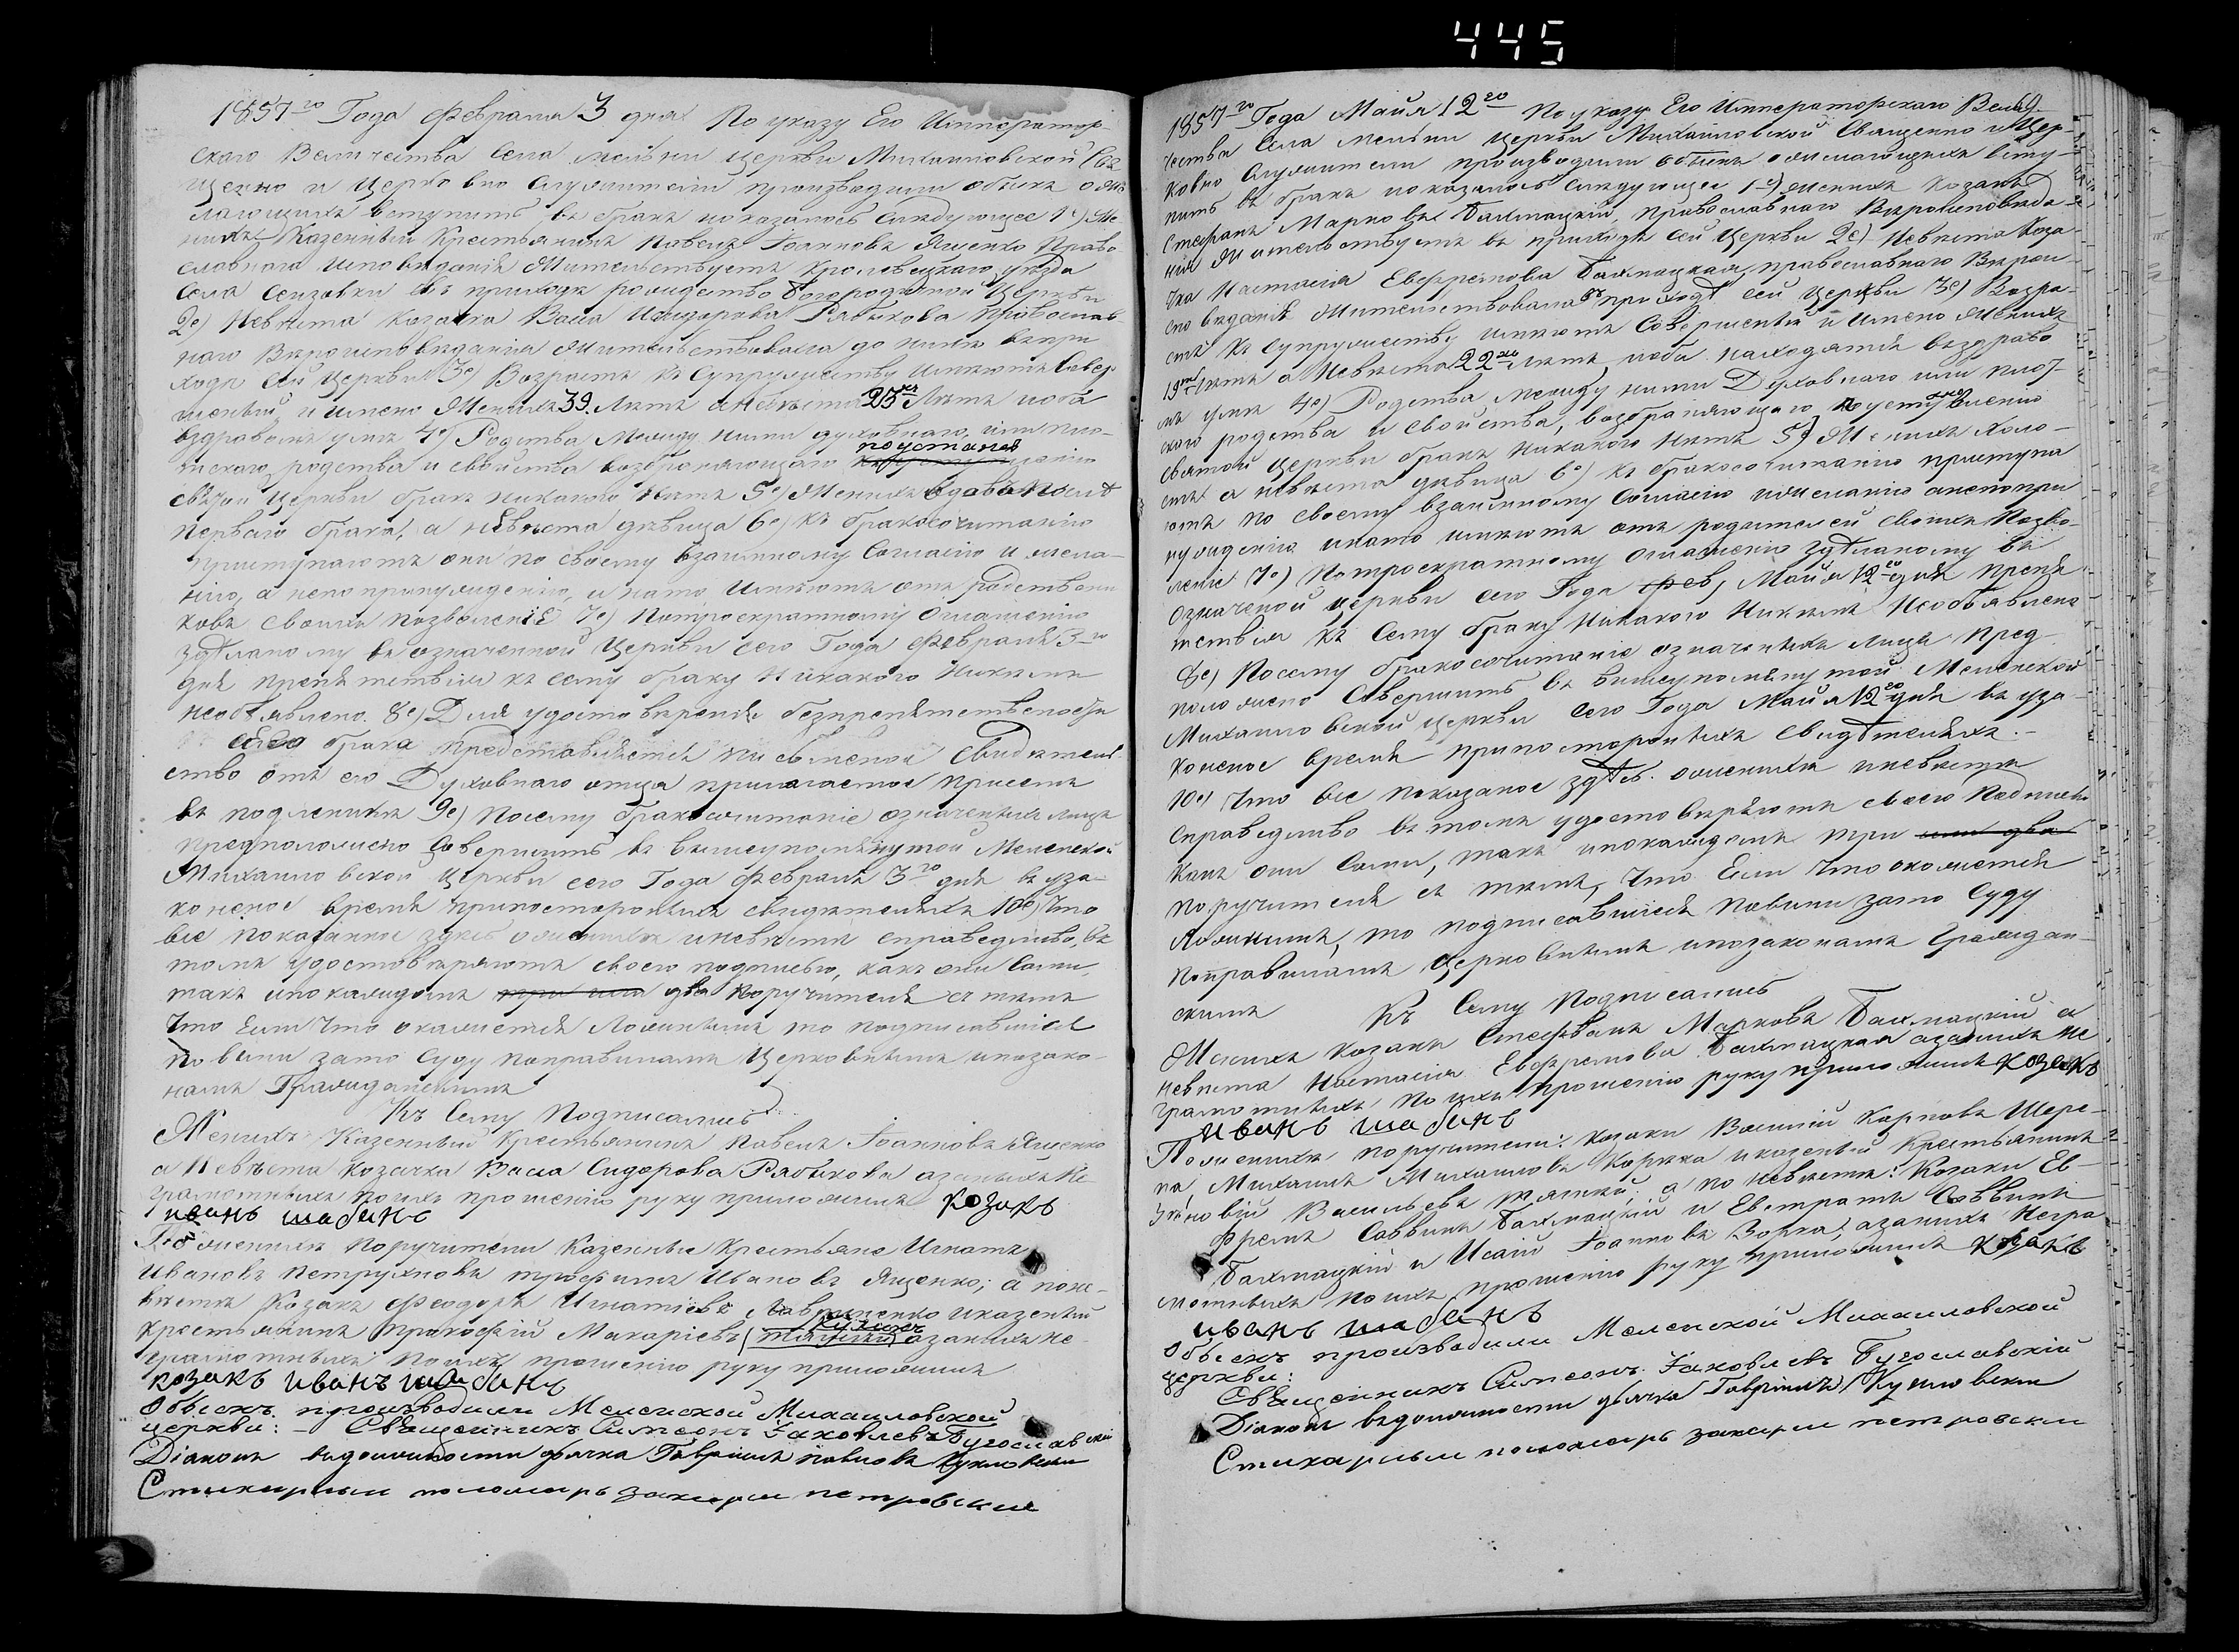 445
1857го Года Февраля 3 дня По указу Его Император-
скаго Величества Села Мельни Церкви Михаиловской Свя
щенно и Церковно Служители производили обыскъ о же
лающихъ вступить въ бракъ и оказалось Слѣдующее 1е) Же-
нихъ Казенный Крестьянинъ Павелъ Іоанновъ Яценко Право
славнаго исповѣданія Жительствуетъ Кролевецкаго уѣзда
Села въ приходѣ рождество Богородичной Церкви
2е) Невѣста козачка Васа Исидорова Рябыхова Православ
наго Вѣроисповѣданія Жительствовала до нинѣ въ при
ходѣ Сей Церкви 3е) Возрастъ къ Супружеству имѣютъ Совер
шеный и имено Женихъ 39. Лѣтъ а Невѣста 25ть Лѣтъ и оба
въ здравомъ умѣ 4е) Родства Между ними духовнаго, или пло-
тскаго родства и свойства возбраняющаго по установ ленію
святой Церкви бракъ никакого нѣтъ 5е) Женихъ вдовъ послѣ
перваго брака, а невѣста дѣвица 6е) къ бракосочитанію
приступаютъ они по своему взаимному Согласію и жела-
нію, а не по принужденію, и на то Имѣютъ отъ родствени
ковъ своихъ позволеніе 7е) По троекратному Оглашенію
здѣланому въ означенной Церкви сего Года Февраля 3го
дня препятствія къ сему браку Никакого Никѣмъ
необъявлено. 8е) Для удостовѣренія безпрепятствености
сего брака представляется писменой Свидѣтель-
ство отъ его Духовнаго отца прилагаемое присемъ
въ подленикѣ 9е) Посему бракосочитаніе означеныхъ лицъ
предположено Совершить въ вышеупомянутой Меленской
Михаиловской Церкви сего Года Февраля 3го дня въ уза-
коненое время при постороныхъ свидѣтеляхъ 10е) Что
все показанное здѣсь о женихѣ и невѣстѣ справедливо, въ
томъ удостовѣряютъ своею подписью, какъ они Сами,
такъ и по каждомъ три или два поручителя съ тѣмъ
Что Если Что окажется Ложнымъ то подписавшіеся
повини зато Суду по правиламъ Церковнымъ и по зако-
намъ Гражданскимъ
Къ Сему Подписались
Женихъ Казенный Крестьянинъ Павелъ Іоанновъ Яценко
а Невѣста козачка Васа Сидорова Рябыхова а за ныхъ Не-
грамотныхъ по ихъ прошенію руку приложилъ козакъ
иванъ шабанъ
По женихѣ поручители Казеные Крестьяне Игнатъ
Ивановъ Петрухновъ Трофимъ Ивановъ Яценко; а по не-
вѣстѣ Козакъ Феодоръ Игнатіевъ и казеный
Крестьянинъ Прокофій Макаріевъ а за ныхъ не-
грамотныхъ по ихъ прошенію руку приложилъ
козакъ иванъ шабанъ
Обыскъ производили Меленской Михаиловской
церкви: – Священникъ Симеонъ Іаковлевъ Бугославскій
Діаконъ въ должности дьячка Гавріилъ Павловъ
Стихарный пономарь захарій петровский
1857го Года Майя 12го По указу Его Императорскаго Вели-
чества Села Мельни Церкви Михаиловской Священно и Цер-
ковно Служители производили обыскъ о желающихъ всту-
пить въ бракъ и оказалось Слѣдующее 1е) Женихъ Козакъ
Стефанъ Марковъ Бахмацкій, православнаго Вѣроисповѣда-
нія Жительствуетъ въ приходѣ сей Церкви 2е) Невѣста Коза-
чка Настасія Евфремова Бахмацкая, православнаго Вѣрои-
сповѣданія Жительствовала въ приходѣ сей Церкви 3е) Возра-
стъ къ Супружеству имѣютъ Совершеный и Имено Женихъ
19ть лѣтъ а Невѣста 22хъ лѣтъ, и оба находятся въ здраво
мъ умѣ 4е) Родства Между ними Духовнаго или плот-
скаго родства и свойства, возбраняющаго по установленію
святой Церкви бракъ никакого нѣтъ 5е) Женихъ холо-
стъ а невѣста дѣвица 6е) къ бракосочитанію приступа
ютъ по своему взаимному Согласію и желанію а не по при
нужденію и на то имѣютъ отъ родителей своихъ Позво-
леніе 7е) По троекратному Оглашенію здѣланому въ
означеной церкви сего Года Фев, Майя 12го дня препя
тствія къ Сему браку Никакого Никѣмъ Необъявлено
8е) Посему бракосочитаніе означеныхъ лицъ Пред-
положено Совершить въ вишеупомянутой Меленской
Михаиловской церкви Сего Года Майя 12го дня въ уза-
коненое время при постороныхъ свидѣтеляхъ. –
10е) Что все показаное здѣсь. о женихѣ и невѣстѣ
Справедливо въ томъ удостовѣряютъ своею Подписью
какъ они Сами, такъ и по каждомъ три или два
поручителя съ тѣмъ, что Если Что окажется
Ложнымъ, то подписавшіеся повини зато Суду
по правиламъ Церковнымъ и по законамъ Граждан-
скимъ
Къ Сему Подписались
Женихъ козакъ Стефванъ Марковъ Бахмацкій а
невѣста Настасія Евфремова Бахмацкая а за ныхъ Не
грамотныхъ по ихъ прошенію руку приложилъ козакъ
иванъ шабанъ
По женихѣ поручители: козаки Василій Карповъ Шере-
па, Михаилъ Михаиловъ Коржха и казеный Крестьянинъ
Зѣновій Васильевъ а по невѣстѣ: Козаки Ев-
фремъ Саввинъ Бахмацкій и Евстратъ Саввинъ
Бахмацкій и Исаій Іоанновъ Зорка, а за ныхъ Негра
мотныхъ по ихъ прошенію руку приложилъ козакъ
иванъ шабанъ
Обыскъ производили Меленской Михаиловской
церкви:
Священникъ Симеонъ Іаковлевъ Бугославскій
Діаконъ въ должности дьячка Гавріилъ
Стихарный пономарь захарій петровский